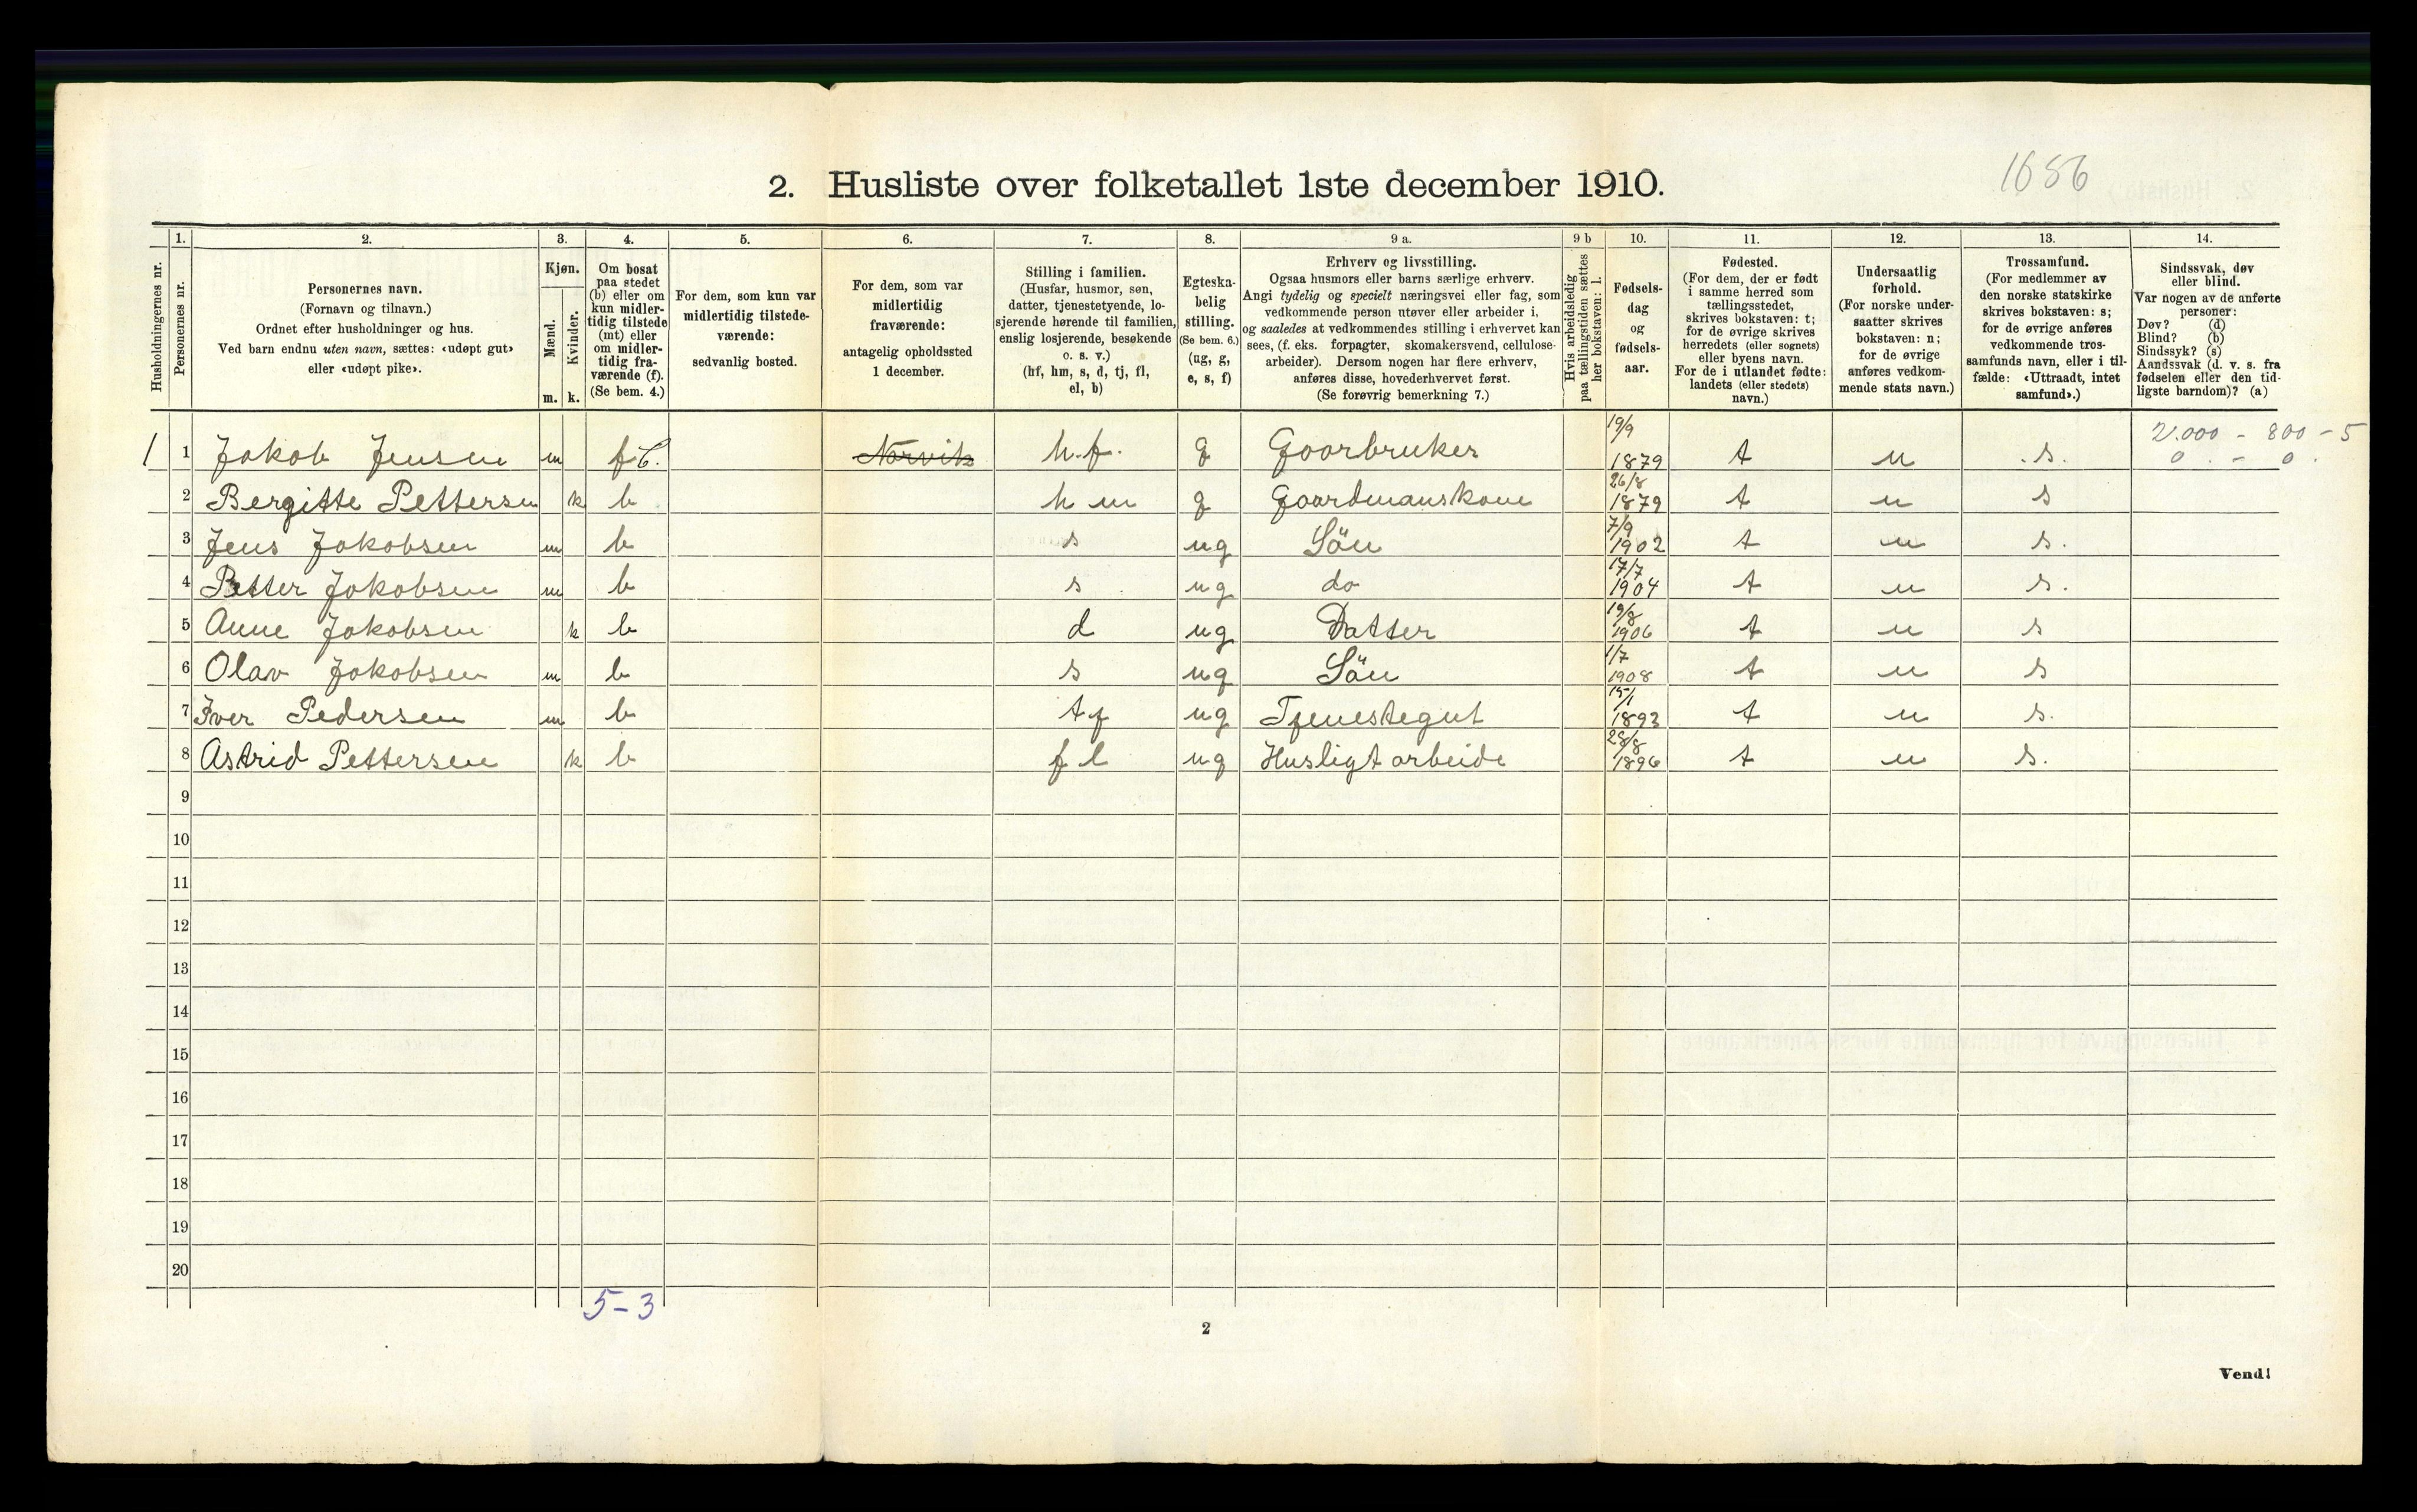 1686
2. Husliste over folketallet 1ste december 1910.
1. 2. 3. 4. 5. 6. 7. 8. 9 a. 9 b 10. 11. 12. 13. 14.
Husholdningernes nr.
Personernes nr.
Personernes navn.
(Fornavn og tilnavn.)
Ordnet efter husholdninger og hus.
Ved barn endnu uten navn, sættes: «udøpt gut»
eller «udøpt pike».
Kjøn.
Mænd.
Kvinder.
m. k.
Om bosat
paa stedet
(b) eller om
kun midler-
tidig tilstede
(mt) eller
om midler-
tidig fra-
værende (f).
(Se bem. 4.)
For dem, som kun var
midlertidig tilstede-
værende:
sedvanlig bosted.
For dem, som var
midlertidig
fraværende:
antagelig opholdssted
1 december.
Stilling i familien.
(Husfar, husmor, søn,
datter, tjenestetyende, lo-
sjerende hørende til familien,
enslig losjerende, besøkende
o. s. v.)
(hf, hm, s, d, tj, fl,
el, b)
Egteska-
belig
stilling.
(Se bem. 6.)
(ug, g,
e, s, f)
Erhverv og livsstilling.
Ogsaa husmors eller barns særlige erhverv.
Angi tydelig og specielt næringsvei eller fag, som
vedkommende person utøver eller arbeider i,
og saaledes at vedkommendes stilling i erhvervet kan
sees, (f. eks. forpagter, skomakersvend, cellulose-
arbeider). Dersom nogen har flere erhverv,
anføres disse, hovederhvervet først.
(Se forøvrig bemerkning 7.)
Hvis arbeidsledig
paa tællingstiden sættes
her bokstaven: l.
Fødsels-
dag
og
fødsels-
aar.
Fødested.
(For dem, der er født
i samme herred som
tællingsstedet,
skrives bokstaven: t;
for de øvrige skrives
herredets (eller sognets)
eller byens navn.
For de i utlandet fødte:
landets (eller stedets)
navn.)
Undersaatlig
forhold.
(For norske under-
saatter skrives
bokstaven: n;
for de øvrige
anføres vedkom-
mende stats navn.)
Trossamfund.
(For medlemmer av
den norske statskirke
skrives bokstaven: s;
for de øvrige anføres
vedkommende tros-
samfunds navn, eller i til-
fælde: «Uttraadt, intet
samfund».)
Sindssvak, døv
eller blind.
Var nogen av de anførte
personer:
Døv? (d)
Blind? (b)
Sindssyk? (s)
Aandssvak (d. v. s. fra
fødselen eller den tid-
ligste barndom)? (a)
2.000 - 800 - 5
0 - 0
1 1 Jakob Jensen m f b. Norvik h.f. g Gaarbruker 19/9 1879 t n s.
2 Bergitte Pettersen k b h m g Gaardmanskone 26/8 1879 t n s
3 Jens Jakobsen m b s ug Sön 7/9 1902 t n s.
4 Petter Jakobsen m b s ug do 17/7 1904 t n s.
5 Anne Jakobsen k b d ug Datter 19/8 1906 t n s
6 Olav Jakobsen m b s ug Sön 1/7 1908 t n s
7 Iver Pedersen m b tj ug Tjenestegut 15/1 1893 t n s.
8 Astrid Pettersen k b f l ug Husligt arbeide 28/8 1896 t n s.
9
10
11
12
13
14
15
16
17
18
19
20
5-3
2
Vend!